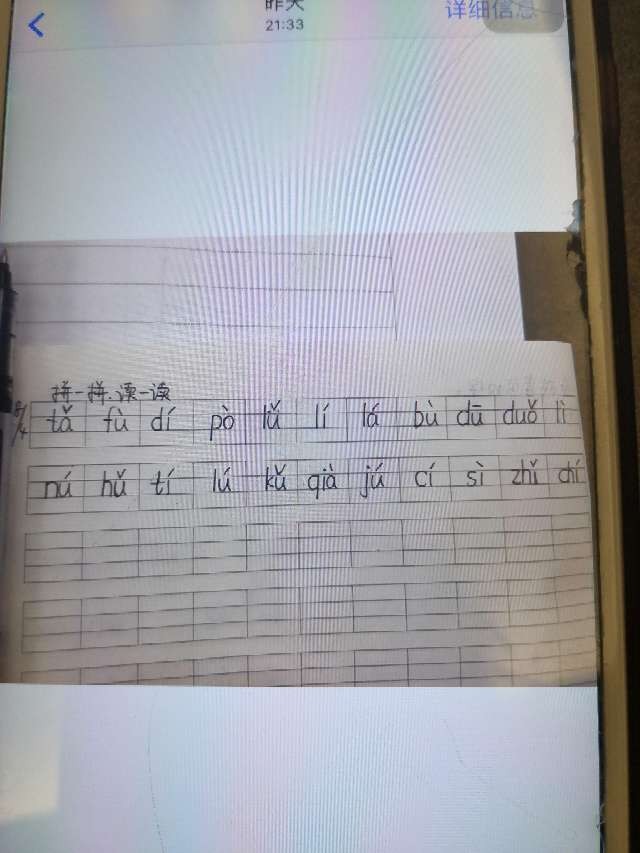 昨天
21:33
详细信息
拼一拼.读一读
8/4
tǎ fù dí pò lǔ lí lá bù dū duǒ lì
nú hǔ tí lú kǔ qià jú cí sì zhǐ chí